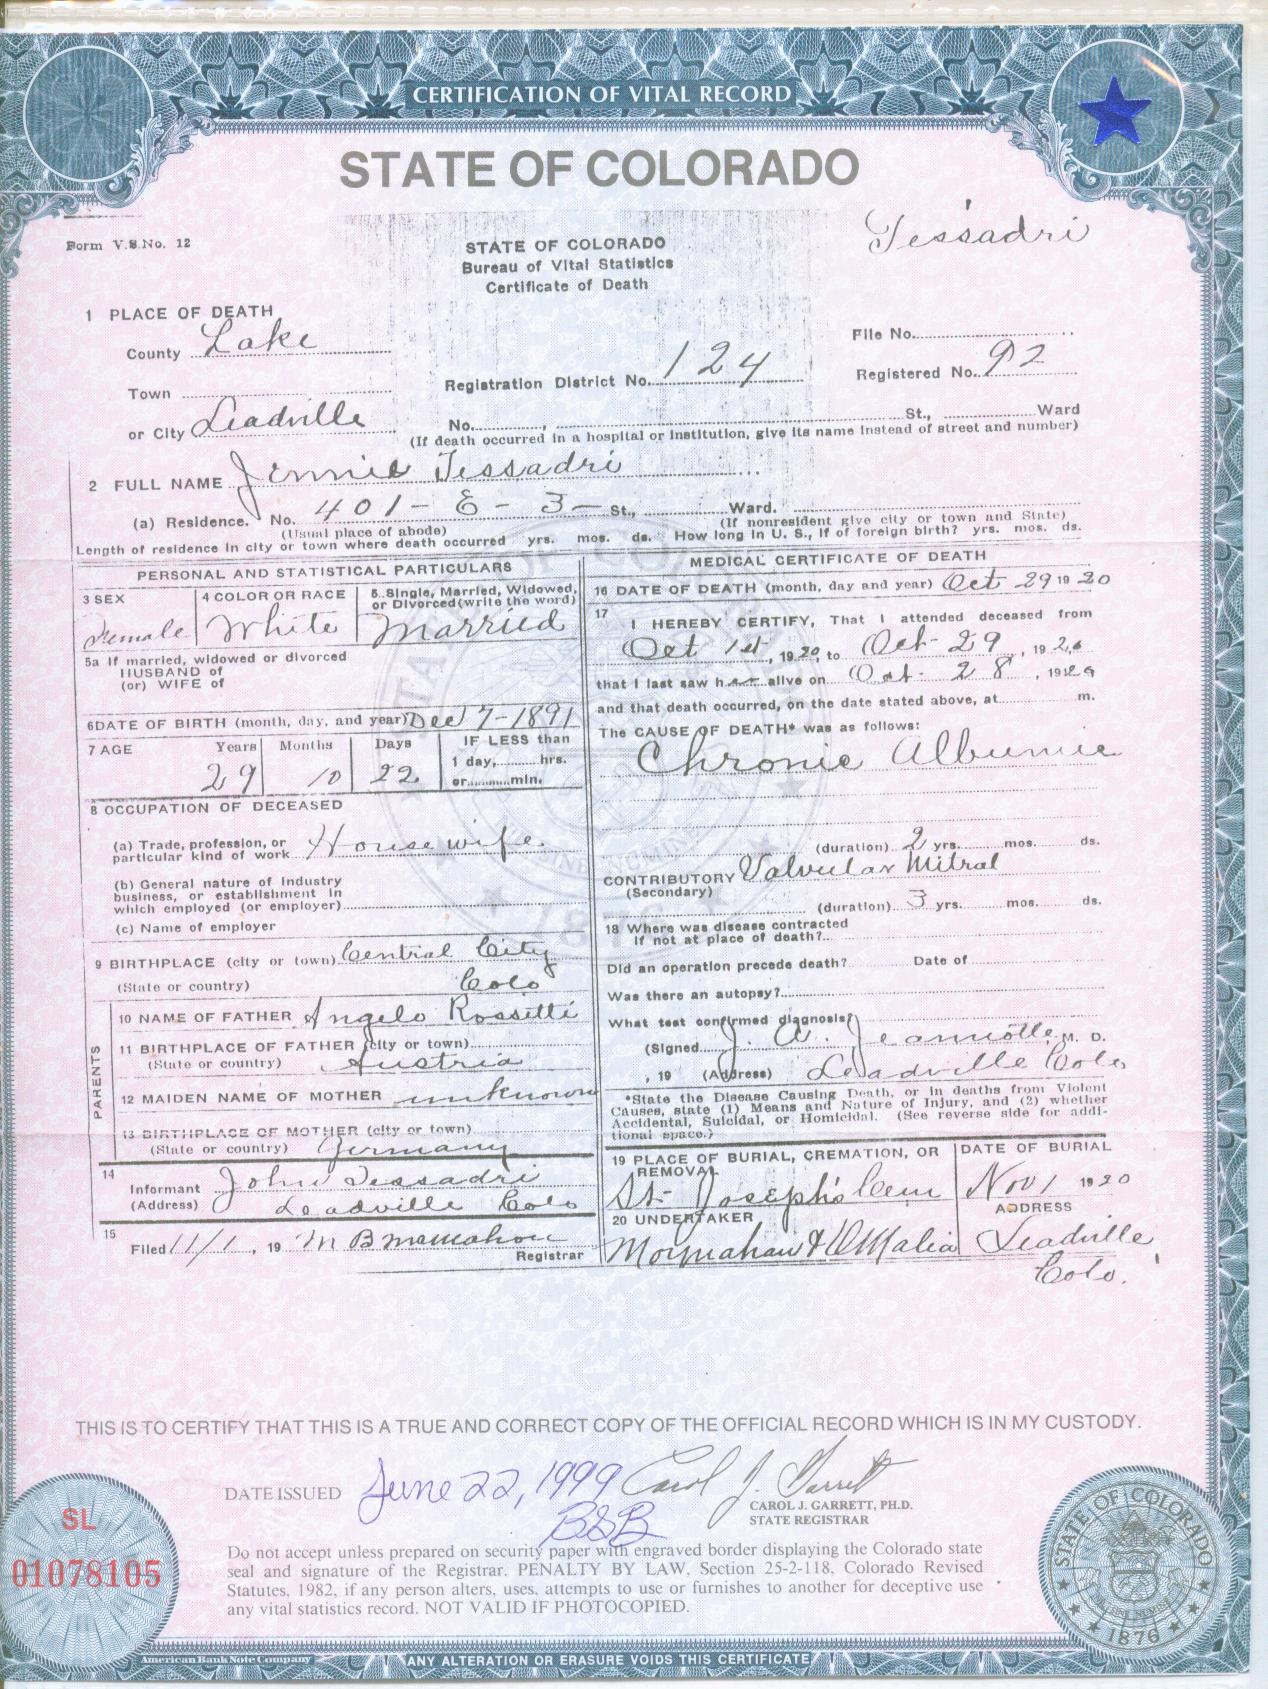 CERTIFICATION OF VITAL RECORD
STATE OF COLORADO
Tessadri
Form V.S.No. 12
STATE OF COLORADO
Bureau of Vital Statistics
Certificate of Death
1 PLACE OF DEATH
County Lake
File No.
Town
Registration District No. 124
Registered No. 92
or City Leadville
No. , St., Ward
(If death occurred in a hospital or institution, give its name instead of street and number)
2 FULL NAME Jennie Tessadri
(a) Residence. No. 401-E-3- St., Ward.
(Usual place of abode) (If nonresident give city or town and State)
Length of residence in city or town where death occurred yrs. mos. ds. How long in U. S., if of foreign birth? yrs. mos. ds.
PERSONAL AND STATISTICAL PARTICULARS
3 SEX
Female
4 COLOR OR RACE
White
5. Single, Married, Widowed,
or Divorced (write the word)
Married
5a If married, widowed or divorced
HUSBAND of
(or) WIFE of
6 DATE OF BIRTH (month, day, and year) Dec 7-1891
7 AGE Years Months Days IF LESS than
29 10 22 1 day, hrs.
or min.
8 OCCUPATION OF DECEASED
(a) Trade, profession, or
particular kind of work House wife
(b) General nature of Industry
business, or establishment in
which employed (or employer)
(c) Name of employer
9 BIRTHPLACE (city or town) Central City
(State or country) Colo
PARENTS
10 NAME OF FATHER Angelo Rossitti
11 BIRTHPLACE OF FATHER (city or town)
(State or country) Austria
12 MAIDEN NAME OF MOTHER unknown
13 BIRTHPLACE OF MOTHER (city or town)
(State or country) Germany
14
Informant John Tessadri
(Address) Leadville Colo
15
Filed 11/1, 19 M B McMahon
Registrar
MEDICAL CERTIFICATE OF DEATH
16 DATE OF DEATH (month, day and year) Oct 29 1920
17
I HEREBY CERTIFY, That I attended deceased from
Oct 1st, 1920, to Oct-29, 1920
that I last saw her alive on Oct-28, 1920
and that death occurred, on the date stated above, at m.
The CAUSE OF DEATH* was as follows:
Chronic Albumie
(duration) 2 yrs. mos. ds.
CONTRIBUTORY Valvular Mitral
(Secondary)
(duration) 3 yrs. mos. ds.
18 Where was disease contracted
if not at place of death?
Did an operation precede death? Date of
Was there an autopsy?
What test confirmed diagnosis?
(Signed J. A. Jeannotte, M. D.
, 19 (Address) Leadville Colo
*State the Disease Causing Death, or in deaths from Violent
Causes, state (1) Means and Nature of Injury, and (2) whether
Accidental, Suicidal, or Homicidal. (See reverse side for addi-
tional space.)
19 PLACE OF BURIAL, CREMATION, OR
REMOVAL
St- Joseph's Cem
DATE OF BURIAL
Nov 1 1920
20 UNDERTAKER
Moynahan & OMalia
ADDRESS
Leadville
Colo.
THIS IS TO CERTIFY THAT THIS IS A TRUE AND CORRECT COPY OF THE OFFICIAL RECORD WHICH IS IN MY CUSTODY.
DATE ISSUED June 22, 1999 Carol J. Garrett
B&B
CAROL J. GARRETT, PH.D.
STATE REGISTRAR
SL
01078105
Do not accept unless prepared on security paper with engraved border displaying the Colorado state
seal and signature of the Registrar. PENALTY BY LAW, Section 25-2-118, Colorado Revised
Statutes, 1982, if any person alters, uses, attempts to use or furnishes to another for deceptive use
any vital statistics record. NOT VALID IF PHOTOCOPIED.
STATE OF COLORADO
1876
American Bank Note Company
ANY ALTERATION OR ERASURE VOIDS THIS CERTIFICATE